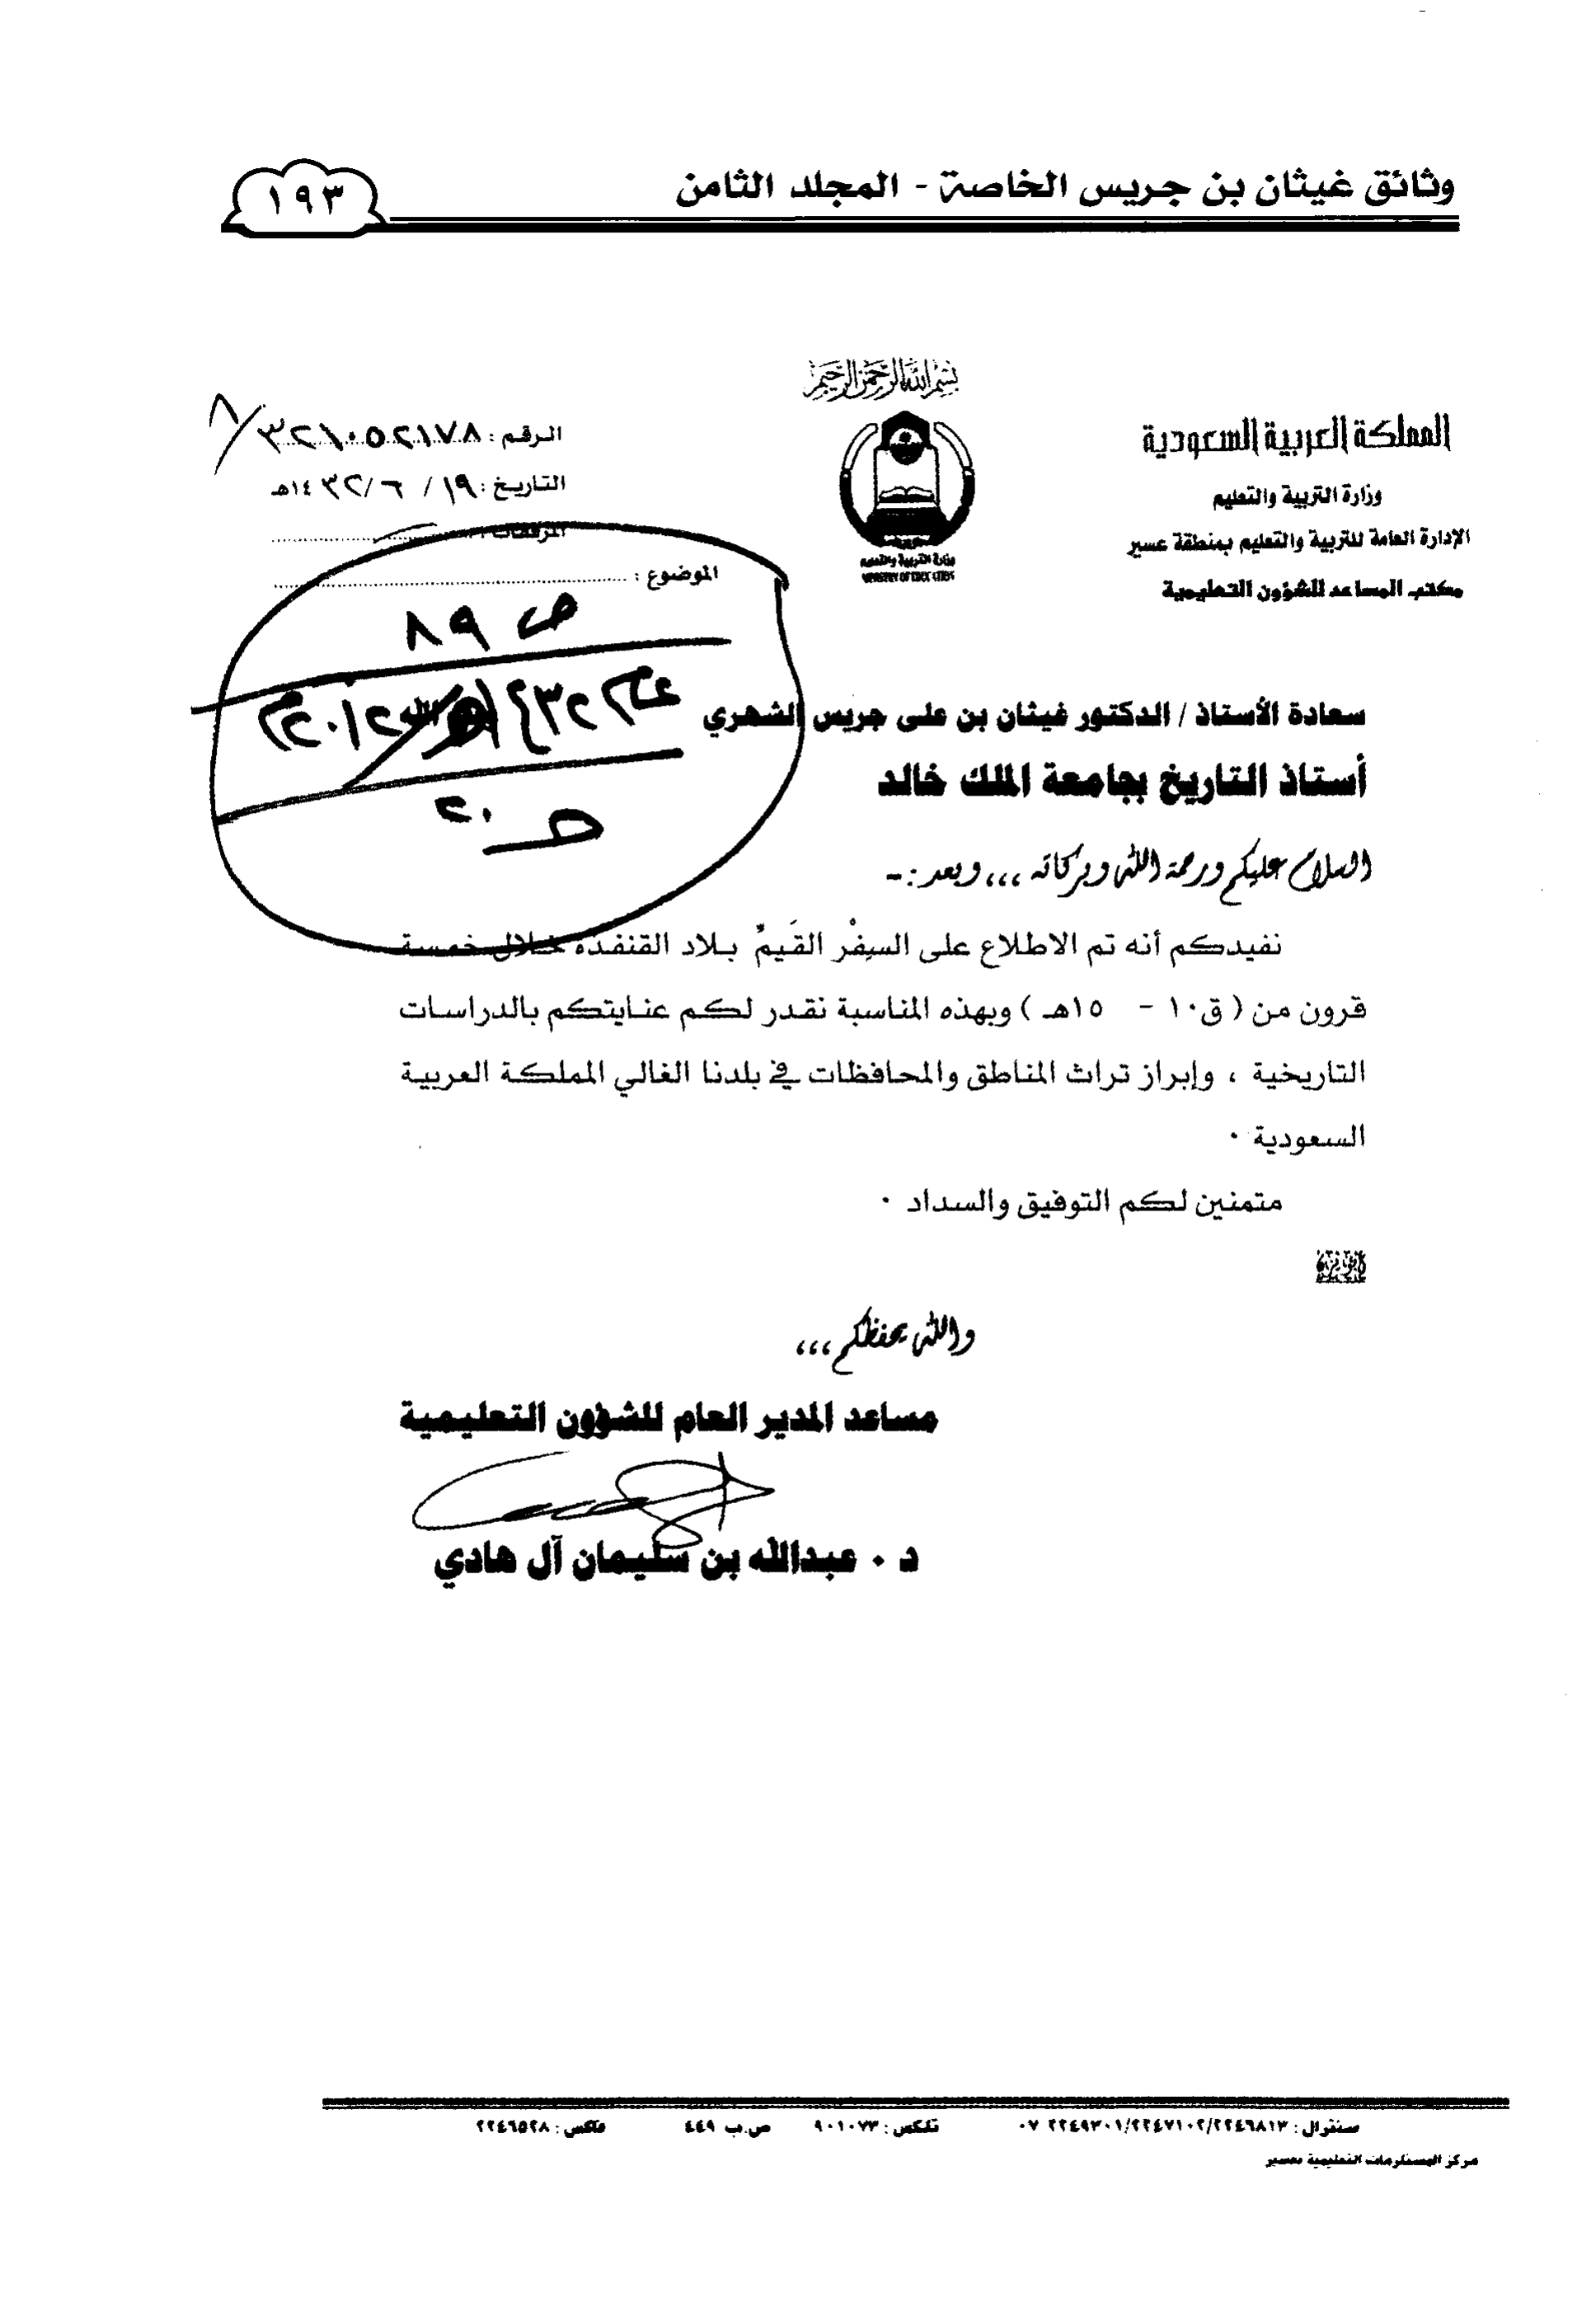 وثائق غيثان بن جريس الخاصة - المجلد الثامن
١٩٣
بسم الله الرحمن الرحيم
المملكة العربية السعودية
وزارة التربية والتعليم
الإدارة العامة للتربية والتعليم بمنطقة عسير
مكتب المساعد للشؤون التعليمية
وزارة التربية والتعليم
الرقم : ٣٢١٠٥٢١٧٨/٨
التاريخ : ١٩/ ٦/ ١٤٣٢هـ
المرفقات :
الموضوع :
ص ٨٩
ح ٢٠
سعادة الأستاذ / الدكتور غيثان بن على جريس الشهري
أستاذ التاريخ بجامعة الملك خالد
السلام عليكم ورحمة الله وبركاته ،،، وبعد :-
نفيدكم أنه تم الاطلاع على السِفْر القَيمِّ بلاد القنفذه خلال خمسة
قرون من ( ق١٠ - ١٥هـ ) وبهذه المناسبة نقدر لكم عنايتكم بالدراسات
التاريخية ، وإبراز تراث المناطق والمحافظات في بلدنا الغالي المملكة العربية
السعودية ٠
متمنين لكم التوفيق والسداد ٠
والله يحفظكم ،،،
مساعد المدير العام للشؤون التعليمية
د ٠ عبدالله بن سليمان آل هادي
سنترال : ٢٢٤٦٨١٣/٢٢٤٧١٠٢/٢٢٤٩٣٠١ ٠٧ تلكس : ٩٠١٠٧٣ ص.ب ٤٤٩ فاكس : ٢٢٤٦٥٢٨
مركز المستلزمات التعليمية بعسير